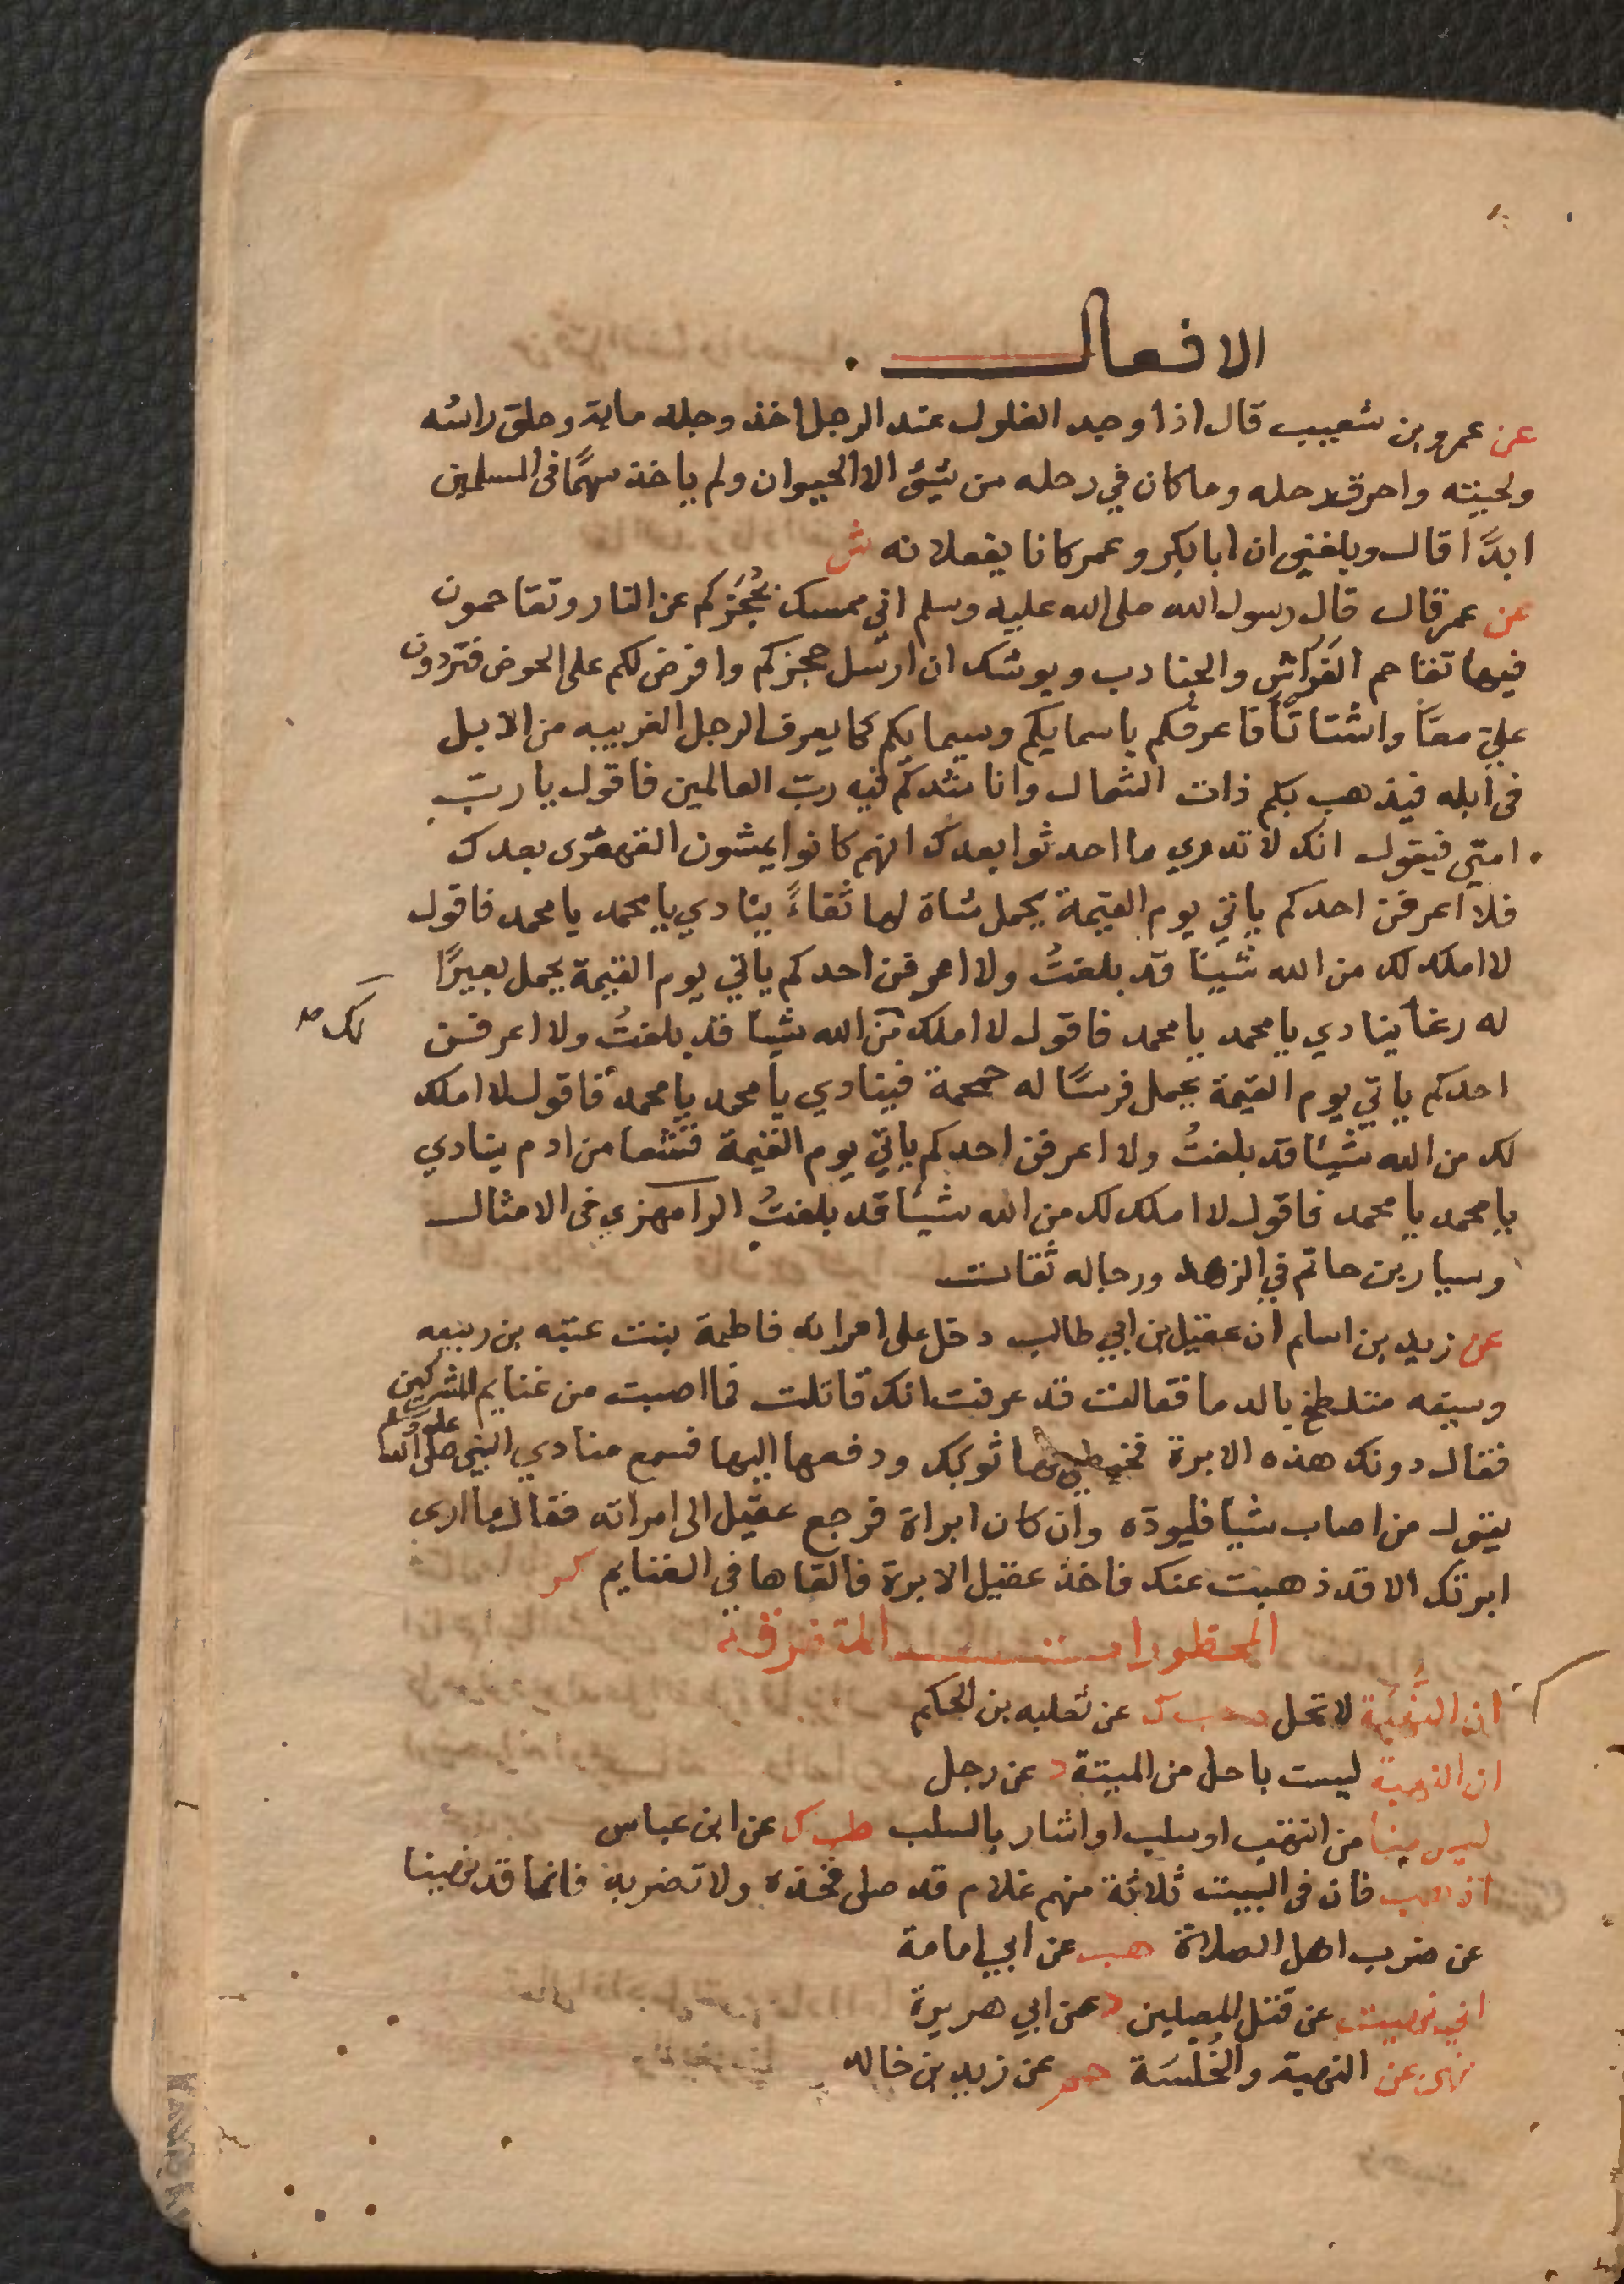 الافعال
عن عمرو بن شعيب قال اذا وجد الغلول عند الرجل اخذ وجلد ماية وحلق راسه
ولحيته واحرق رحله وما كان في رحله من شيئ الا الحيوان ولم ياخذ سهمًا في المسلمين
ابدًا قال وبلغني ان ابا بكر وعمر كانا يفعلانه ش
عن عمر قال قال رسول الله صلى الله عليه وسلم اني ممسك بحُجَزكم عن النار وتقاحمون
فيها تقاحم الفَراش والجنادب ويوشك ان ارسل حجزكم وافرض لكم على الحوض فتردون
علي معًا واشتاتًا فاعرفكم باسمايكم وسيمايكم كما يعرف الرجل الغريبه من الابل
في ابله فيذهب بكم ذات الشمال واناشدكم فيه ربّ العالمين فاقول يا ربّ
امتي فيقول انك لا تدري ما احدثوا بعدك انهم كانوا يمشون القهقرى بعدك
فلا اعرفن احدكم ياتي يوم القيمة يحمل شاة لها ثغاءً ينادي يا محمد يا محمد فاقول
لا املك لك من الله شيئا قد بلغتُ ولا اعرفن احدكم ياتي يوم القيمة يحمل بعيرًا
له رغأ ينادي يا محمد يا محمد فاقول لا املك من الله شيئا قد بلغتُ ولا اعرفن
لك صح
احدكم ياتي يوم القيمة يحمل فرسًا له حمحمة فينادي يا محمد يا محمد فاقول لا املك
لك من الله شيئا قد بلغتُ ولا اعرفن احدكم ياتي يوم القيمة قشعا من ادم ينادي
يا محمد يا محمد فاقول لا املك لك من الله شيئا قد بلغتُ الرامهزي في الامثال
وسيار بن حاتم في الزهد ورجاله ثقات
عن زيد بن اسلم ان عقيل بن ابي طالب دخل على امراته فاطمة بنت عتبه بن ربيعه
وسيفه متلطخ بالدما فقالت قد عرفت انك قاتلت فما اصبت من غنايم المشركين
فقال دونك هذه الابرة فخيطي بها ثوبك ودفعها اليها فسمع منادي النبي صلى الله عليه وسلم
يقول من اصاب شيئا فليوده وان كان ابراة فرجع عقيل الى امراته فقال ما ارى
ابرتك الا قد ذهبت عنك فاخذ عقيل الابرة فالقاها في الغنايم كر
المحظورات المتفرقة
ان النُّهبَة لا تحل ه حب ك عن ثعلبه بن الحكم
ان النهبة ليست باحل من الميتة د عن رجل
ليس منا من انتهب او سلب او اشار بالسلب طب ك عن ابن عباس
اذهب فان في البيت ثلاثة منهم غلام قد صلى فخذه ولا تضربه فانما قد نهينا
عن ضرب اهل الصلاة هب عن ابي امامة
اني نهيت عن قتل المصلين د عن ابي هريرة
نهى عن النهبة والخُلسَة حم عن زيد بن خالد